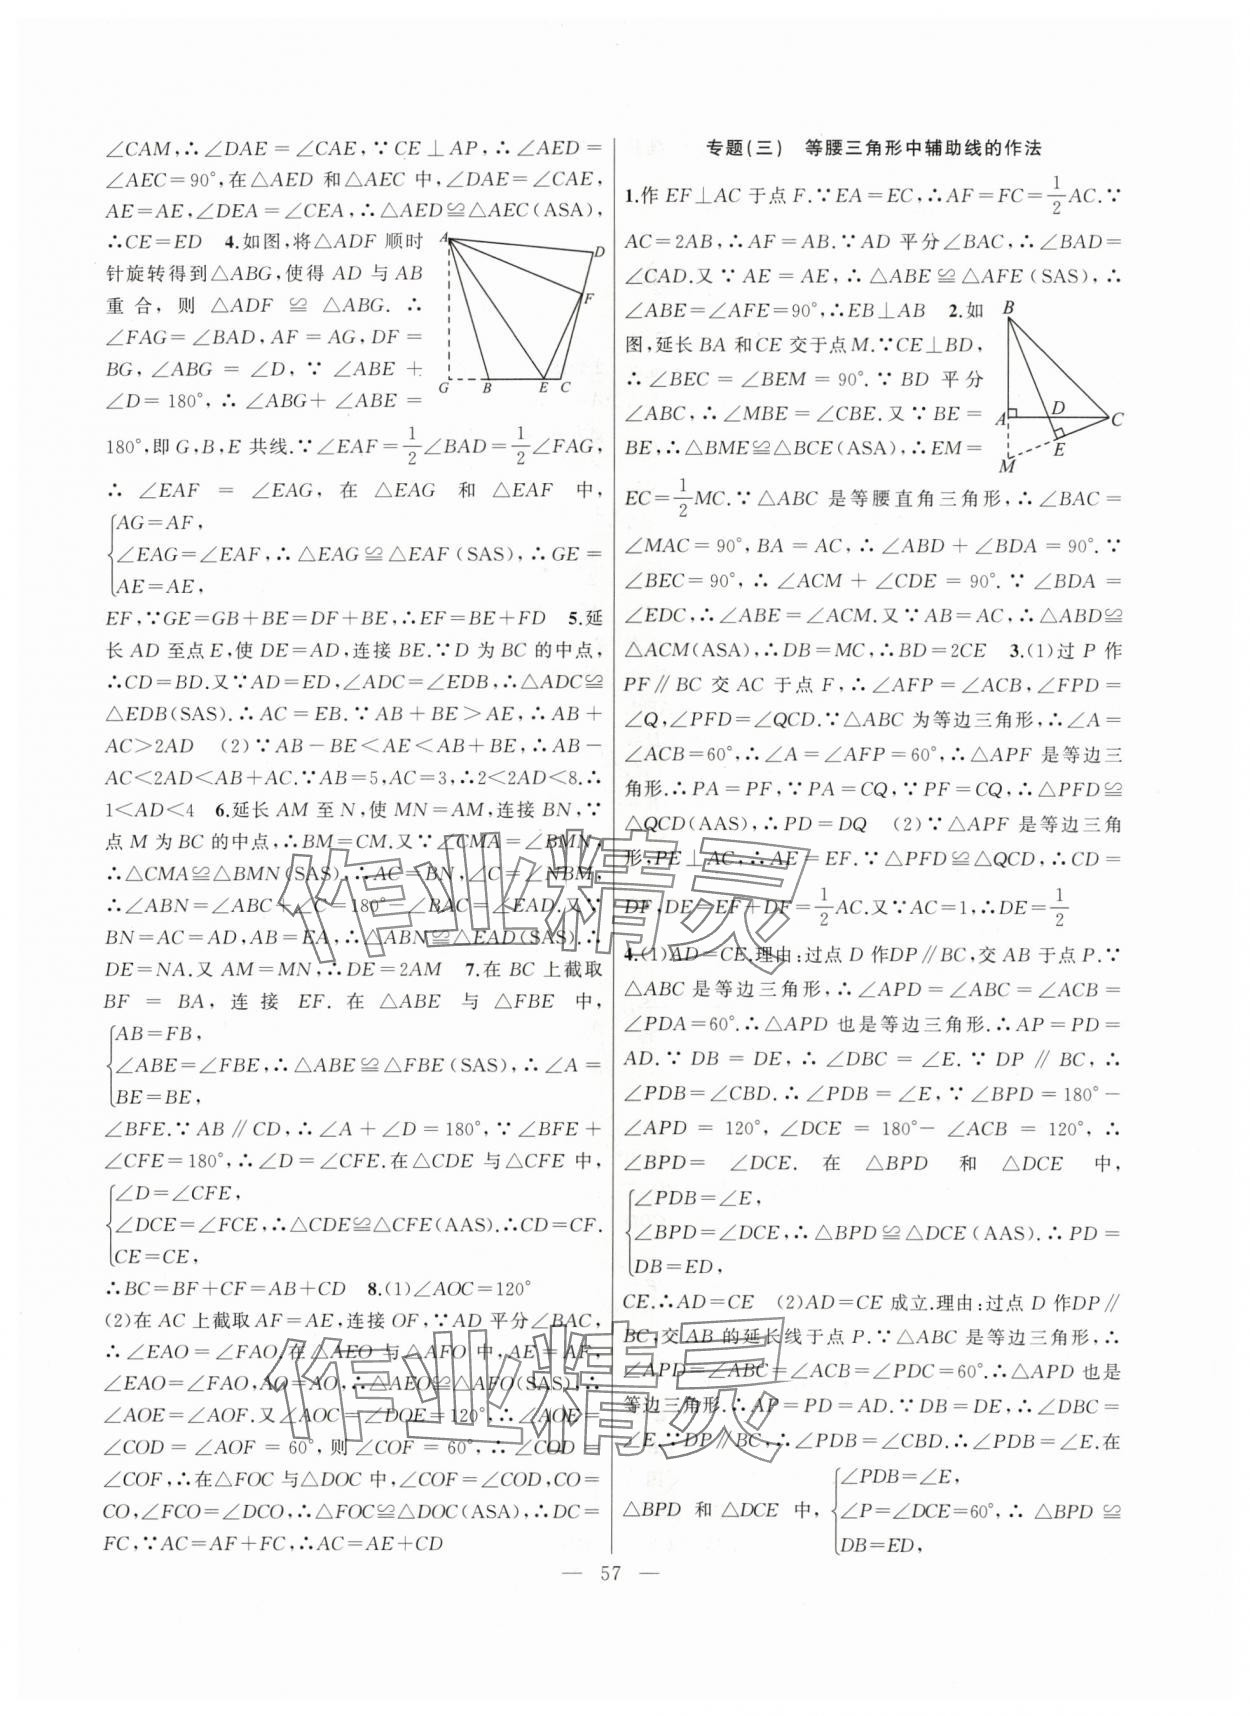 ∠CAM,∴∠DAE=∠CAE,∵CE⊥AP,∴∠AED=
∠AEC=90°,在△AED和△AEC中,∠DAE=∠CAE,
AE=AE,∠DEA=∠CEA,∴△AED≌△AEC(ASA),
∴CE=ED 4.如图,将△ADF顺时
针旋转得到△ABG,使得AD与AB
重合,则△ADF≌△ABG.∴
∠FAG=∠BAD,AF=AG,DF=
BG,∠ABG=∠D,∵∠ABE+
∠D=180°,∴∠ABG+∠ABE=
A
D
F
G
B
E
C
180°,即G,B,E共线.∵∠EAF=1/2∠BAD=1/2∠FAG,
∴∠EAF=∠EAG,在△EAG和△EAF中,
AG=AF,
∠EAG=∠EAF,∴△EAG≌△EAF(SAS),∴GE=
AE=AE,
EF,∵GE=GB+BE=DF+BE,∴EF=BE+FD 5.延
长AD至点E,使DE=AD,连接BE.∵D为BC的中点,
∴CD=BD.又∵AD=ED,∠ADC=∠EDB,∴△ADC≌
△EDB(SAS).∴AC=EB.∵AB+BE>AE,∴AB+
AC>2AD (2)∵AB-BE<AE<AB+BE,∴AB-
AC<2AD<AB+AC.∵AB=5,AC=3,∴2<2AD<8.∴
1<AD<4 6.延长AM至N,使MN=AM,连接BN,∵
点M为BC的中点,∴BM=CM.又∵∠CMA=∠BMN,
∴△CMA≌△BMN(SAS),∴AC=BN,∠C=∠NBM,
∴∠ABN=∠ABC+∠C=180°-∠BAC=∠EAD.又∵
BN=AC=AD,AB=EA,∴△ABN≌△EAD(SAS).∴
DE=NA.又AM=MN,∴DE=2AM 7.在BC上截取
BF=BA,连接EF.在△ABE与△FBE中,
AB=FB,
∠ABE=∠FBE,∴△ABE≌△FBE(SAS),∴∠A=
BE=BE,
∠BFE.∵AB∥CD,∴∠A+∠D=180°,∵∠BFE+
∠CFE=180°,∴∠D=∠CFE.在△CDE与△CFE中,
∠D=∠CFE,
∠DCE=∠FCE,∴△CDE≌△CFE(AAS).∴CD=CF.
CE=CE,
∴BC=BF+CF=AB+CD 8.(1)∠AOC=120°
(2)在AC上截取AF=AE,连接OF,∵AD平分∠BAC,
∴∠EAO=∠FAO,在△AEO与△AFO中,AE=AF,
∠EAO=∠FAO,AO=AO,∴△AEO≌△AFO(SAS),∴
∠AOE=∠AOF.又∠AOC=∠DOE=120°,∴∠AOE=
∠COD=∠AOF=60°,则∠COF=60°,∴∠COD=
∠COF,∴在△FOC与△DOC中,∠COF=∠COD,CO=
CO,∠FCO=∠DCO,∴△FOC≌△DOC(ASA),∴DC=
FC,∵AC=AF+FC,∴AC=AE+CD
专题(三) 等腰三角形中辅助线的作法
1.作EF⊥AC于点F.∵EA=EC,∴AF=FC=1/2AC.∵
AC=2AB,∴AF=AB.∵AD平分∠BAC,∴∠BAD=
∠CAD.又∵AE=AE,∴△ABE≌△AFE(SAS),∴
∠ABE=∠AFE=90°,∴EB⊥AB 2.如
图,延长BA和CE交于点M.∵CE⊥BD,
∴∠BEC=∠BEM=90°.∵BD平分
∠ABC,∴∠MBE=∠CBE.又∵BE=
BE,∴△BME≌△BCE(ASA),∴EM=
B
A
D
C
E
M
EC=1/2MC.∵△ABC是等腰直角三角形,∴∠BAC=
∠MAC=90°,BA=AC,∴∠ABD+∠BDA=90°.∵
∠BEC=90°,∴∠ACM+∠CDE=90°.∵∠BDA=
∠EDC,∴∠ABE=∠ACM.又∵AB=AC,∴△ABD≌
△ACM(ASA),∴DB=MC,∴BD=2CE 3.(1)过P作
PF∥BC交AC于点F,∴∠AFP=∠ACB,∠FPD=
∠Q,∠PFD=∠QCD.∵△ABC为等边三角形,∴∠A=
∠ACB=60°,∴∠A=∠AFP=60°,∴△APF是等边三
角形,∴PA=PF,∵PA=CQ,∵PF=CQ,∴△PFD≌
△QCD(AAS),∴PD=DQ (2)∵△APF是等边三角
形,PE⊥AC,∴AE=EF.∵△PFD≌△QCD,∴CD=
DF,DE=EF+DF=1/2AC.又∵AC=1,∴DE=1/2
4.(1)AD=CE.理由:过点D作DP∥BC,交AB于点P.∵
△ABC是等边三角形,∴∠APD=∠ABC=∠ACB=
∠PDA=60°.∴△APD也是等边三角形.∴AP=PD=
AD.∵DB=DE,∴∠DBC=∠E.∵DP∥BC,∴
∠PDB=∠CBD.∴∠PDB=∠E,∵∠BPD=180°-
∠APD=120°,∠DCE=180°-∠ACB=120°,∴
∠BPD=∠DCE.在△BPD和△DCE中,
∠PDB=∠E,
∠BPD=∠DCE,∴△BPD≌△DCE(AAS).∴PD=
DB=ED,
CE.∴AD=CE (2)AD=CE成立.理由:过点D作DP∥
BC,交AB的延长线于点P.∵△ABC是等边三角形,∴
∠APD=∠ABC=∠ACB=∠PDC=60°.∴△APD也是
等边三角形.∴AP=PD=AD.∵DB=DE,∴∠DBC=
∠E.∵DP∥BC,∴∠PDB=∠CBD.∴∠PDB=∠E.在
∠PDB=∠E,
△BPD和△DCE中, ∠P=∠DCE=60°,∴△BPD≌
DB=ED,
— 57 —
作业精灵
作业精灵